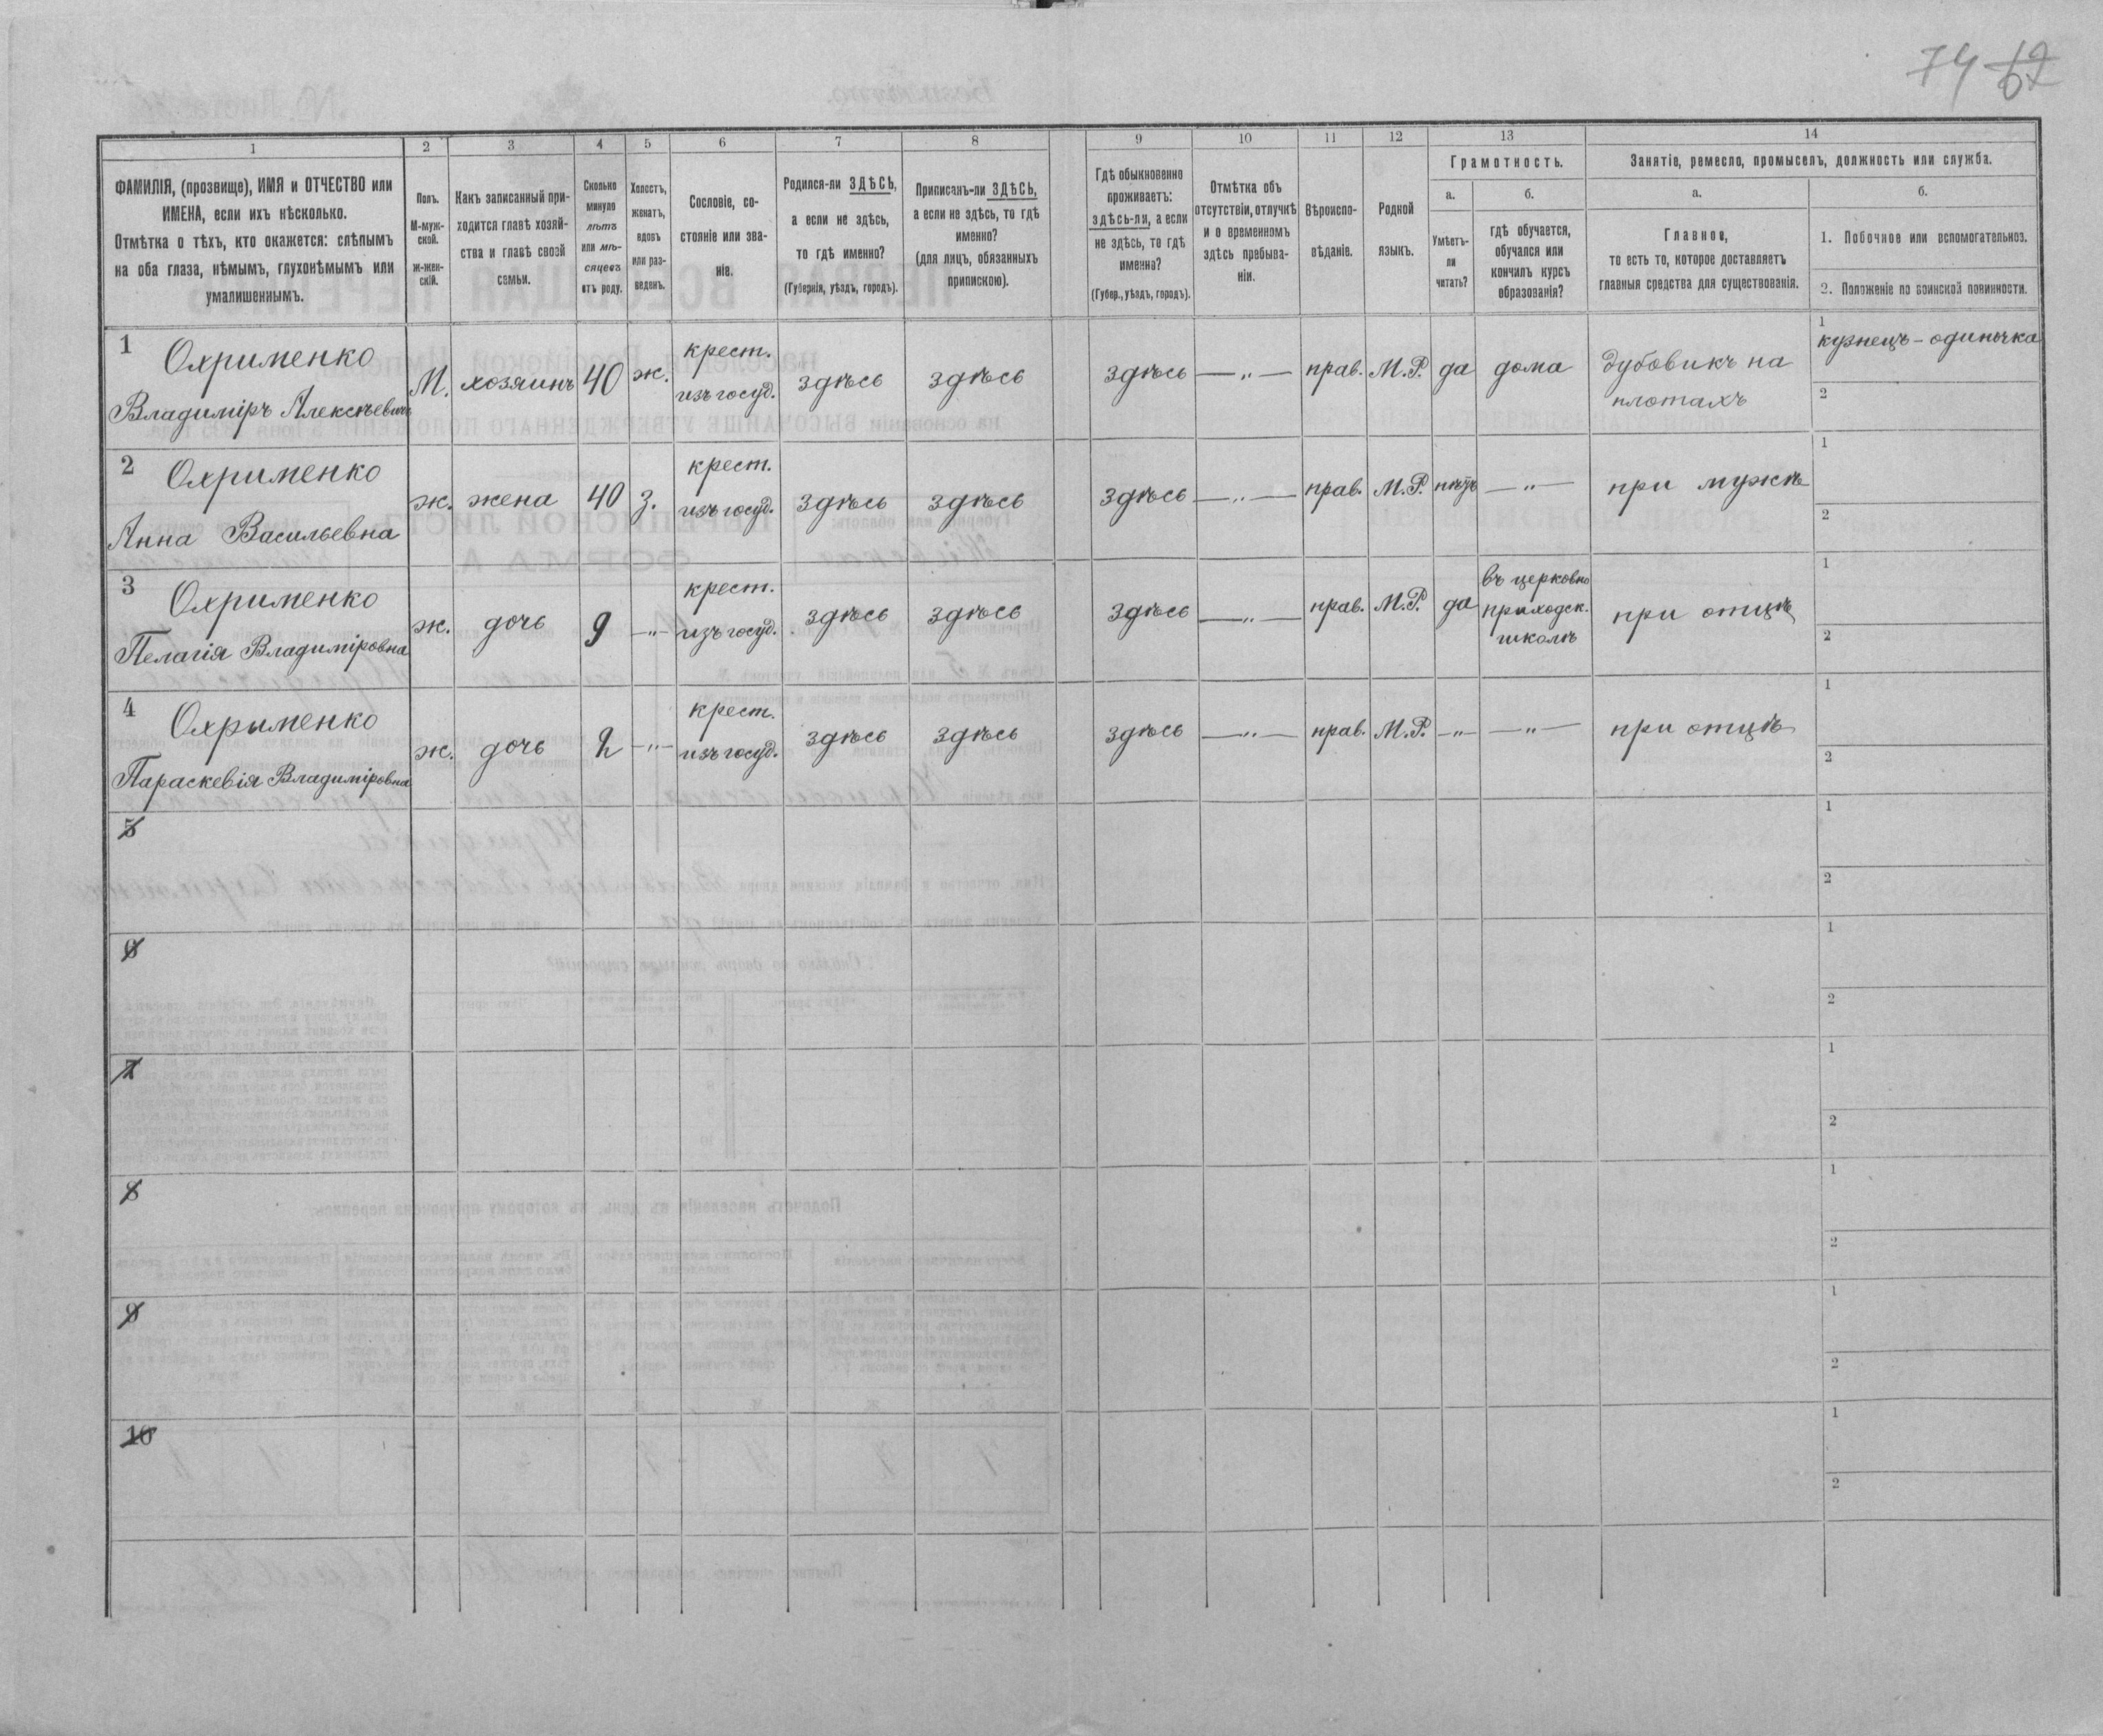 74 62
1
2
3
4
5
6
7
8
9
10
11
12
13
14
ФАМИЛІЯ, (прозвище), ИМЯ и ОТЧЕСТВО или
ИМЕНА, если ихъ нѣсколько.
Отмѣтка о тѣхъ, кто окажется: слѣпымъ
на оба глаза, нѣмымъ, глухонѣмымъ или
умалишеннымъ.
Полъ.
М-муж-
ской.
ж-жен-
скій.
Какъ записанный при-
ходится главѣ хозяй-
ства и главѣ своей
семьи.
Сколько
минуло
лѣтъ
или мѣ-
сяцевъ
отъ роду.
Холостъ,
женатъ,
вдовъ
или раз-
веденъ.
Сословіе, со-
стояніе или зва-
ніе.
Родился-ли ЗДѢСЬ,
а если не здѣсь,
то гдѣ именно?
(Губернія, уѣздъ, городъ).
Приписанъ-ли ЗДѢСЬ,
а если не здѣсь, то гдѣ
именно?
(для лицъ, обязанныхъ
припискою).
Гдѣ обыкновенно
проживаетъ:
здѣсь-ли, а если
не здѣсь, то гдѣ
именно?
(Губер., уѣздъ, городъ).
Отмѣтка объ
отсутствіи, отлучкѣ
и о временномъ
здѣсь пребыва-
ніи.
Вѣроиспо-
вѣданіе.
Родной
языкъ.
Грамотность.
а.
Умѣетъ-
ли
читать?
б.
гдѣ обучается,
обучался или
кончилъ курсъ
образованія?
Занятіе, ремесло, промыселъ, должность или служба.
а.
Главное,
то есть то, которое доставляетъ
главныя средства для существованія.
б.
1. Побочное или вспомогательное.
2. Положеніе по воинской повинности.
1 Охрименко
Владиміръ Алексѣевичъ
М. хозяинъ 40 ж.
крест.
изъ госуд.
здѣсь здѣсь здѣсь —„— прав. М.Р. да дома
дубовикъ на
плотахъ
1
кузнецъ-одиночка
2
2 Охрименко
Анна Васильевна
ж. жена 40 з.
крест.
изъ госуд.
здѣсь здѣсь здѣсь —„— прав. М.Р. нѣтъ —„— при мужѣ
1
2
3 Охрименко
Пелагія Владиміровна
ж. дочь 9 —„—
крест.
изъ госуд.
здѣсь здѣсь здѣсь —„— прав. М.Р. да
въ церковно
приходск.
школѣ
при отцѣ
1
2
4 Охрыменко
Параскевія Владиміровна
ж. дочь 2 —„—
крест.
изъ госуд.
здѣсь здѣсь здѣсь —„— прав. М.Р. —„— —„— при отцѣ
1
2
5
1
2
6
1
2
7
1
2
8
1
2
9
1
2
10
1
2